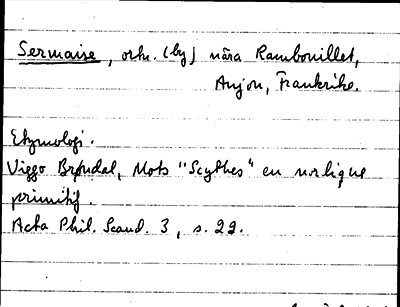 Sermaise, ortn. (by) nära Rambouillet,
Anjou, Frankrike.
Etymologi.
Viggo Brøndal, Mots "Scythes" en nordique
primitif.
Acta Phil. Scand. 3, s. 22.